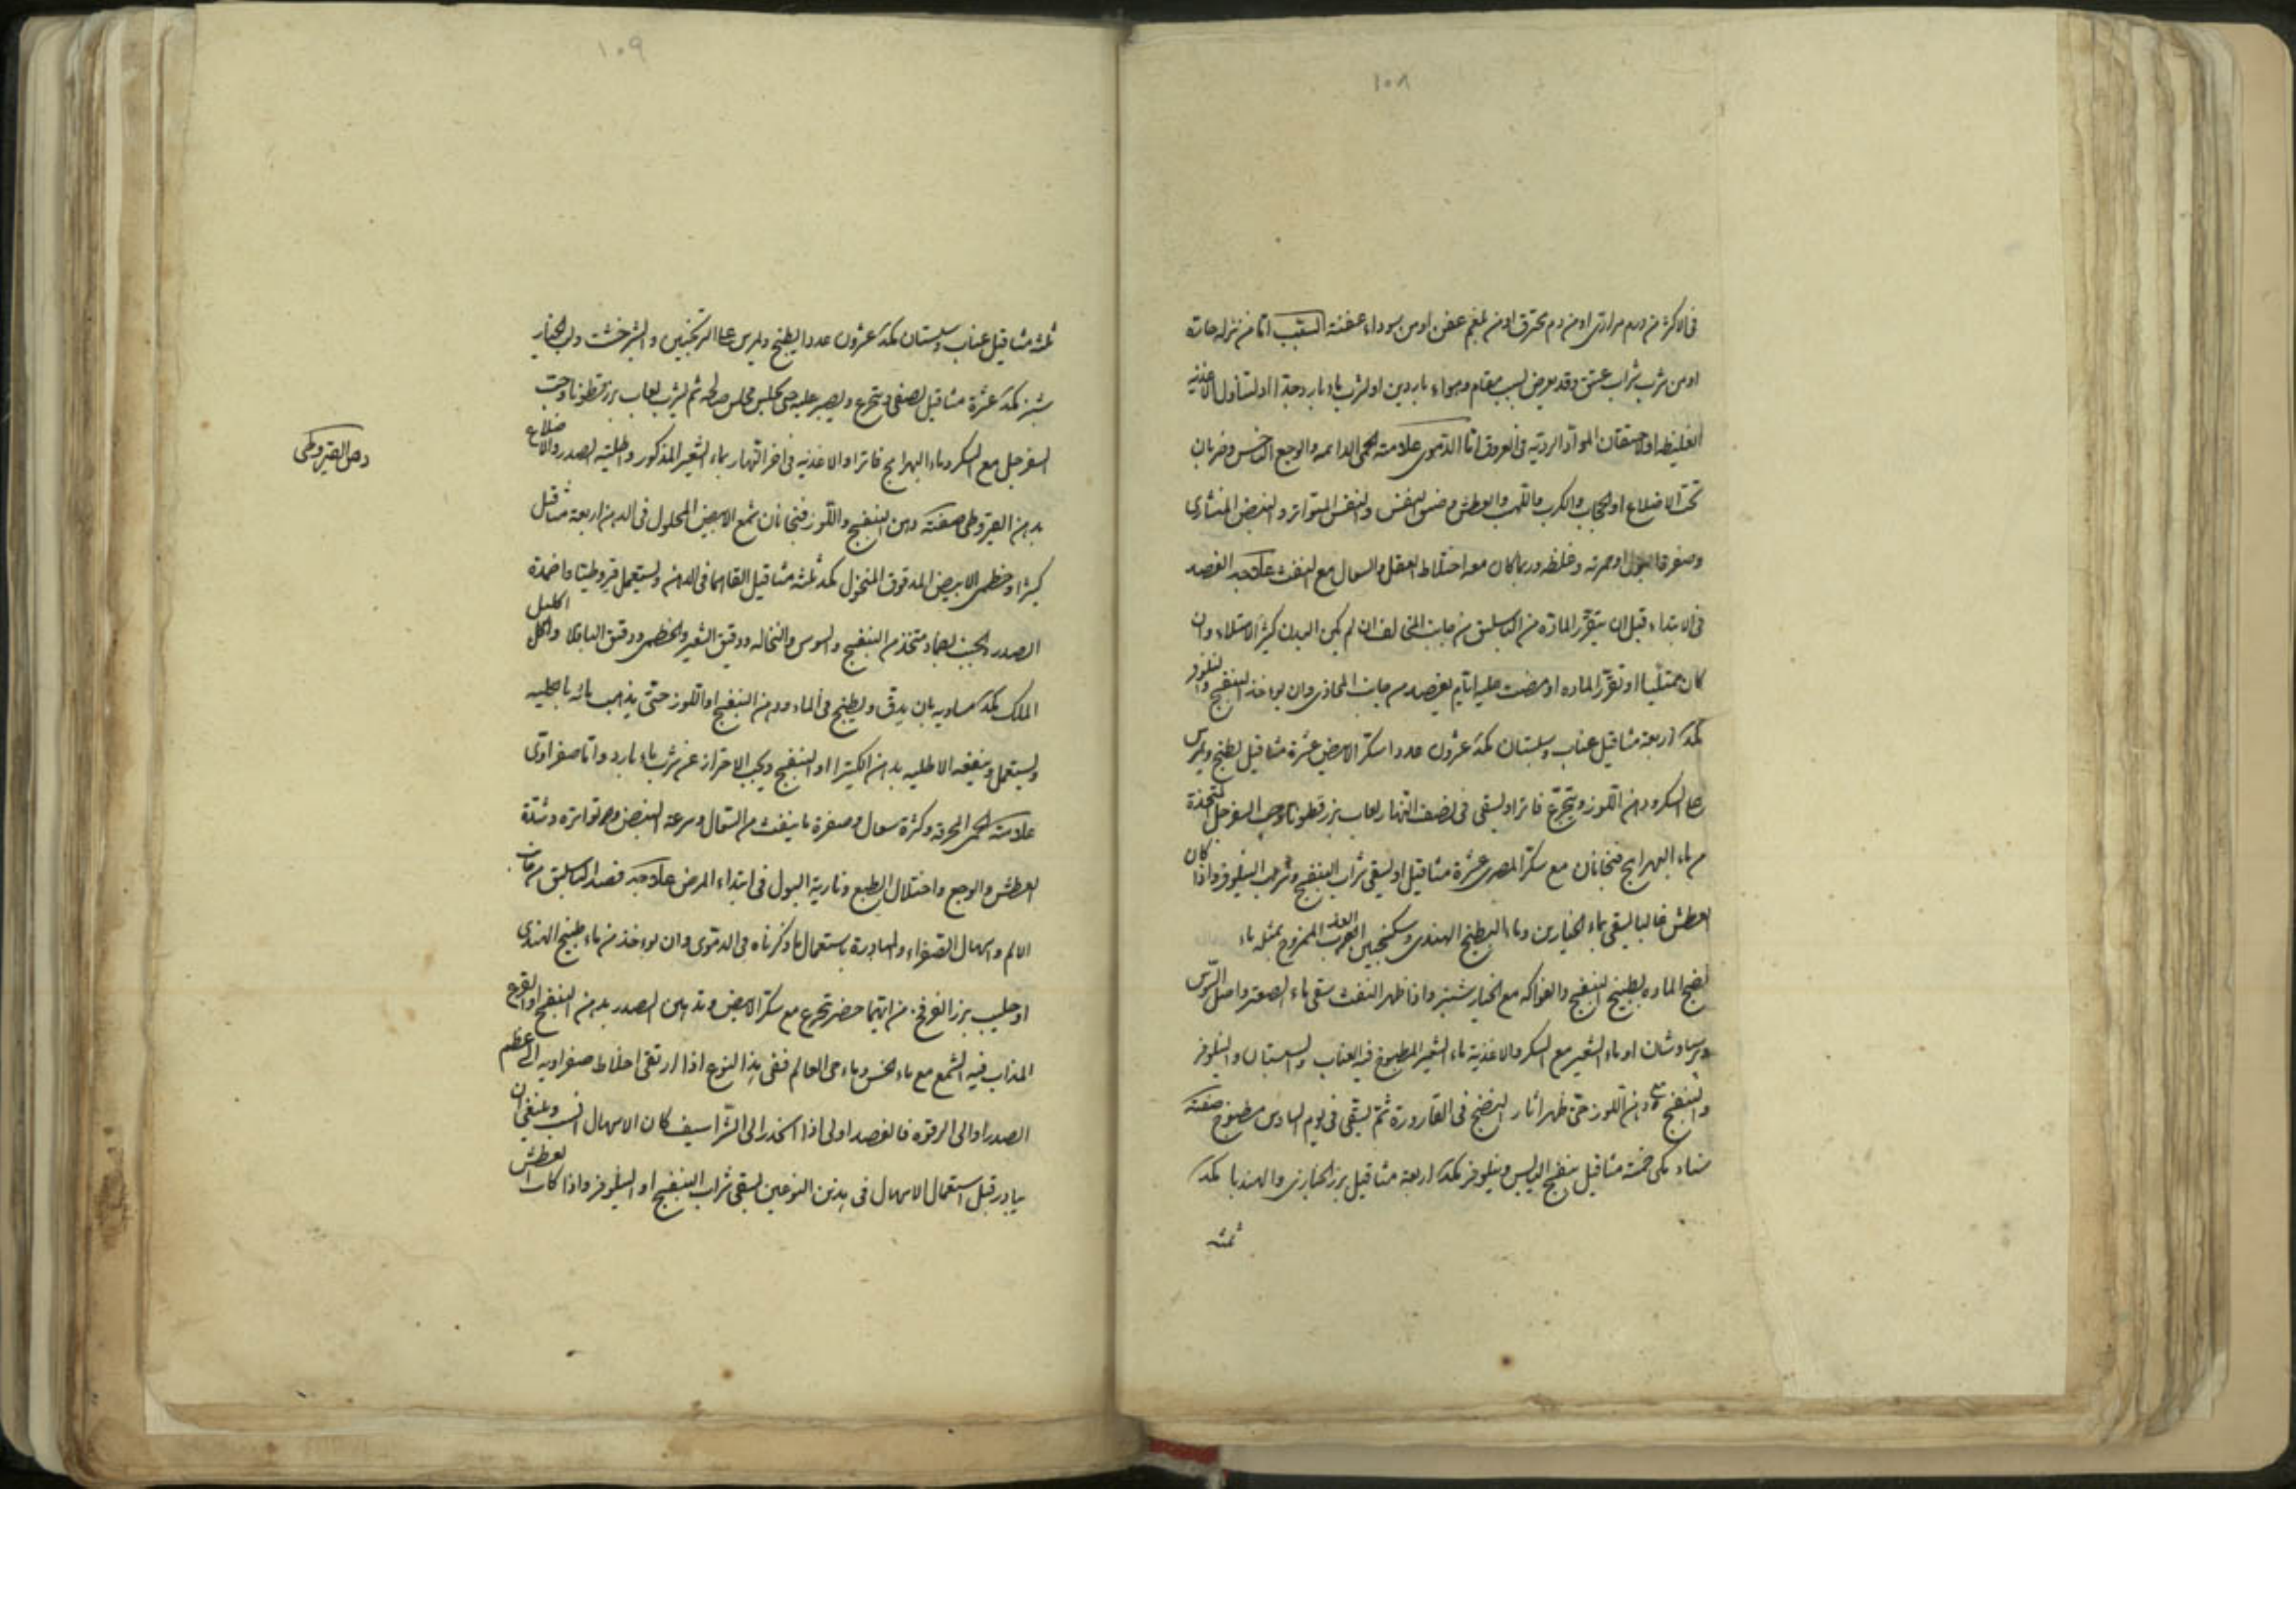 ١٠٨
فى الاكثر من دم مرارى او من دم محترق او من بلغم عفن او من سوداء عفنة السبب اما من نزله حادة
او من شرب شراب عتيق وقد يعرض لسبب مقام وهواء باردين او لشرب ماء بارد جدا او لتناول الاغذيه
الغليظه او لاحتقان المواد الرديه فى العروق اما الدموى علامته الحمى الدائمه والوجع الناخس وضربان
تحت الاضلاع او الحجاب والكرب والتلهب والعطش وضيق النفس والنفس المتواتر والنبض المنشارى
وصفرة البول او حمرته وغلظه وربما كان معه اختلاط العقل والسعال مع النفث علاجه الفصد
فى الابتداء قبل ان يتقرر المادة من الباسليق من جانب المخالف ان لم يكن البدن كثير الامتلاء وان
كان ممتلئا او تقرر الماده او مضت عليه ايام يفصد من جانب المحاذى وان يوءخذ البنفسج والنيلوفر
بكمد اربعة مثاقيل عناب وسبستان بكمد عشرون عددا سكر الابيض عشرة مثاقيل يطبخ ويمرس
على السكر ودهن اللوز ويتجرع فاترا ويسقى فى نصف النهار لعاب بزرقطونا وحب السفرجل المتخذة
من ماء البهرامج فنجانان مع سكر المصرى عشرة مثاقيل او يسقى شراب البنفسج وشراب النيلوفر واذا كان
العطش غالبا يسقى بماء الخيارين وماء البطيخ الهندى وسكنجبين الممزوج بمثله ماء
لنضج الماده بطبيخ البنفسج والفواكه مع الخيارشنبر واذا ظهر النفث سقى ماء الصعتر واصل السوس
وبرسياوشان او ماء الشعير مع السكر والاغذية ماء الشعير المطبوخ فيه العناب والسبستان والنيلوفر
والبنفسج مع دهن اللوز حتى ظهر اثار النضج فى القارورة ثم يسقى فى يوم السادس مطبوخ صفته
سناء مكى خمسة مثاقيل بنفسج اليابس ونيلوفر بكمد اربعة مثاقيل بزر الخبازى والهندبا بكمد
ثلثه
١٠٩
ثلثه مثاقيل عناب وسبستان بكمد عشرون عددا يطبخ ويمرس على الترنجبين والشيرخشت ولب الخيار
شنبر بكمد عشرة مثاقيل يصفى ويتجرع ويصبر عليه حتى يجلس مجلس صالحه ثم يشرب لعاب بزرقطونا وحب
السفرجل مع السكر وماء البهرامج فاترا والاغذيه فى اخر النهار بماء الشعير المذكور واطلية الصدر والاضلاع
دهن القيروطى
بدهن القيروطى صفته دهن البنفسج واللوز فنجانان شمع الابيض المحلول فى الدهن اربعة مثاقيل
كثيرا وخطمى الابيض المدقوق المنخول بكمد ثلثه مثاقيل القاهما فى الدهن ويستعمل قيروطيا واضمدة
الصدر والجنب بضماد متخذ من البنفسج والسوس والنخاله ودقيق الشعير والخطمى ودقيق الباقلا واكليل
الملك بكمد مساويه بان يدق ويطبخ فى الماء ودهن البنفسج او اللوز حتى يذهب مائه بالكليه
ويستعمل وينفعه الاطليه بدهن الكثيرا او البنفسج ويجب الاحتراز عن شرب ماء بارد واما صفراوى
علامته الحمى المحرقه وكثرة سعال وصفرة ما ينفث من السعال وسرعة النبض وتواتره وشدة
العطش والوجع واختلال الطبع ونارية البول فى ابتداء المرض علاجه فصد الباسليق من جانب
الالم واسهال الصفراء والمبادرة باستعمال ما ذكرناه فى الدموى وان يوءخذ من ماء بطيخ الهندى
او حليب بزر الفرفخ من ايهما حضر تجرع مع سكر الابيض وتدهين الصدر بدهن البنفسج او القرع
المذاب فيه الشمع مع ماء الخس وماء حى العالم ففى هذا النوع اذا ارتقى اخلاط صفراويه الى عظم
الصدر او الى الرقوة فالفصد اولى اذا انحدر الى الشراسيف كان الاسهال انسب وينبغى ان
يبادر قبل استعمال الاسهال فى هذين النوعين يسقى شراب البنفسج او النيلوفر واذا كان العطش